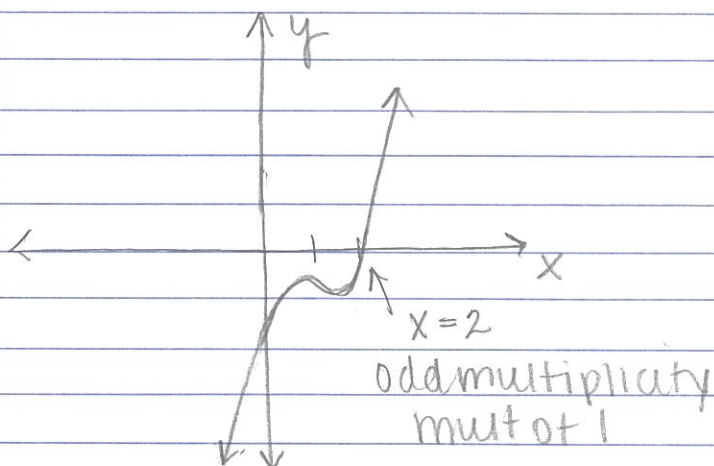 y
x
x = 2
odd multiplicity
mult of 1